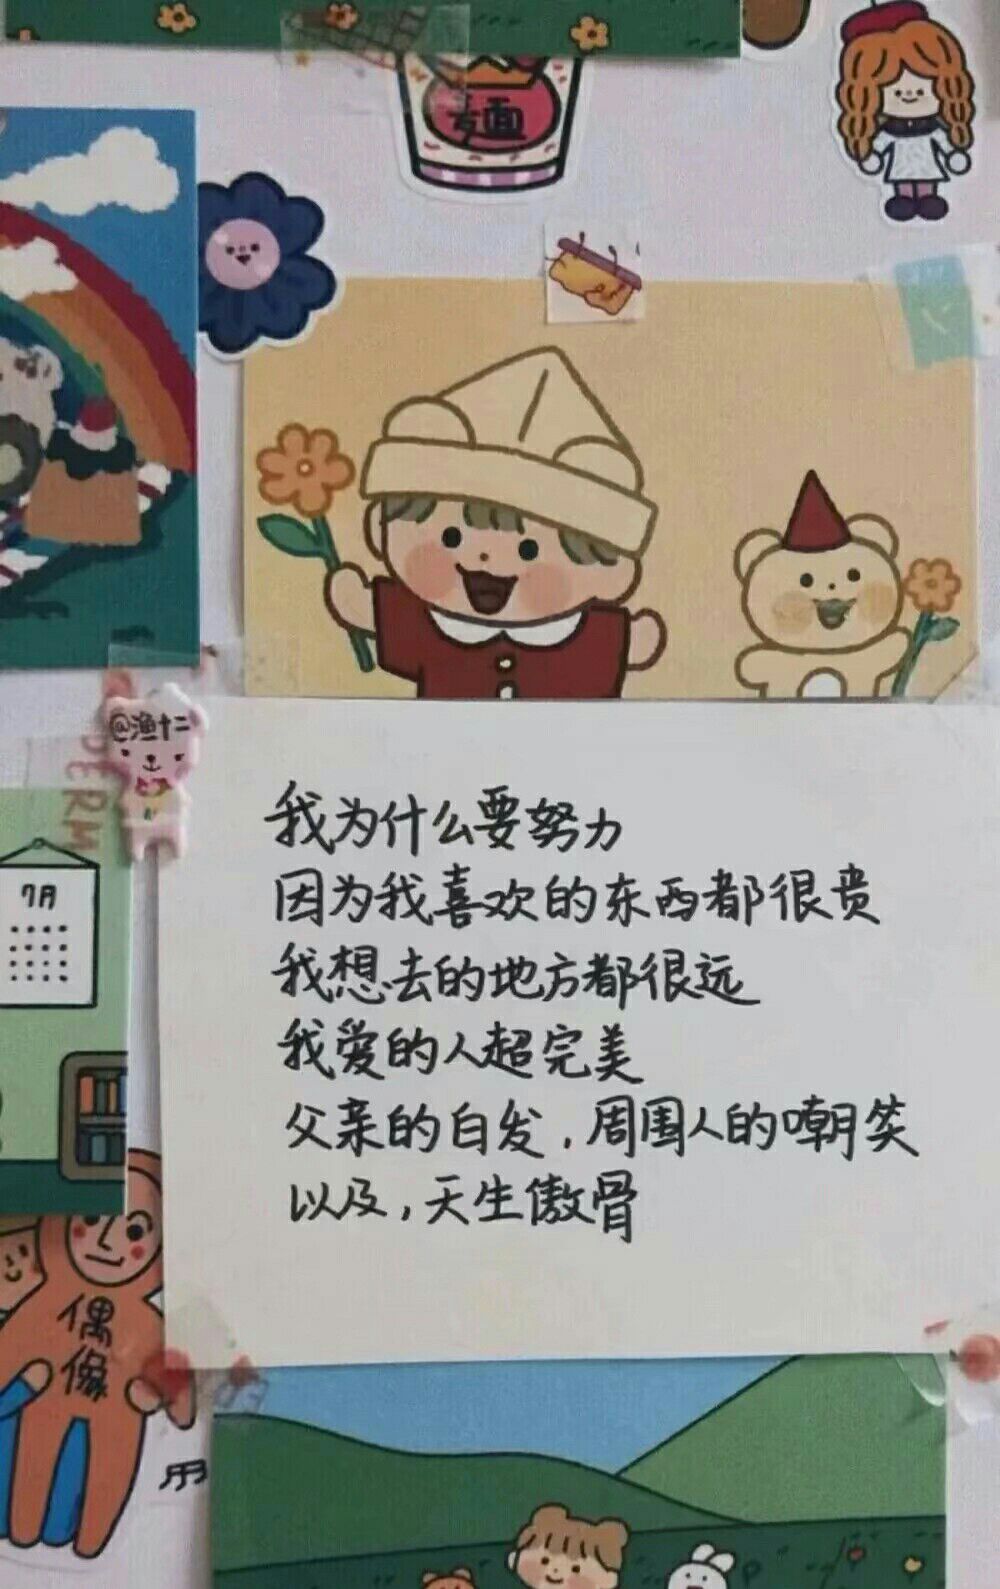 麵
@渔十二
DERM
7月
我为什么要努力
因为我喜欢的东西都很贵
我想去的地方都很远
我爱的人超完美
父亲的白发，周围人的嘲笑
以及，天生傲骨
偶
像